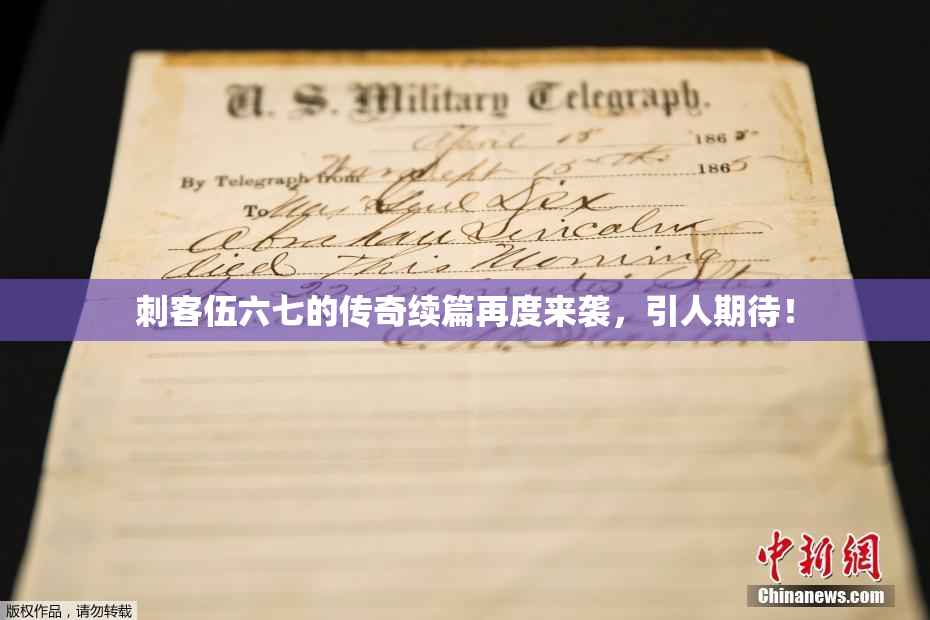 U. S. Military Telegraph.
April 15 1865
By Telegraph from War Dept 15th 1865
To Maj Genl Dix
Abraham Lincoln
died This Morning
22 minutes after
刺客伍六七的传奇续篇再度来袭，引人期待！
E. M. Stanton
中新網
Chinanews.com
版权作品，请勿转载